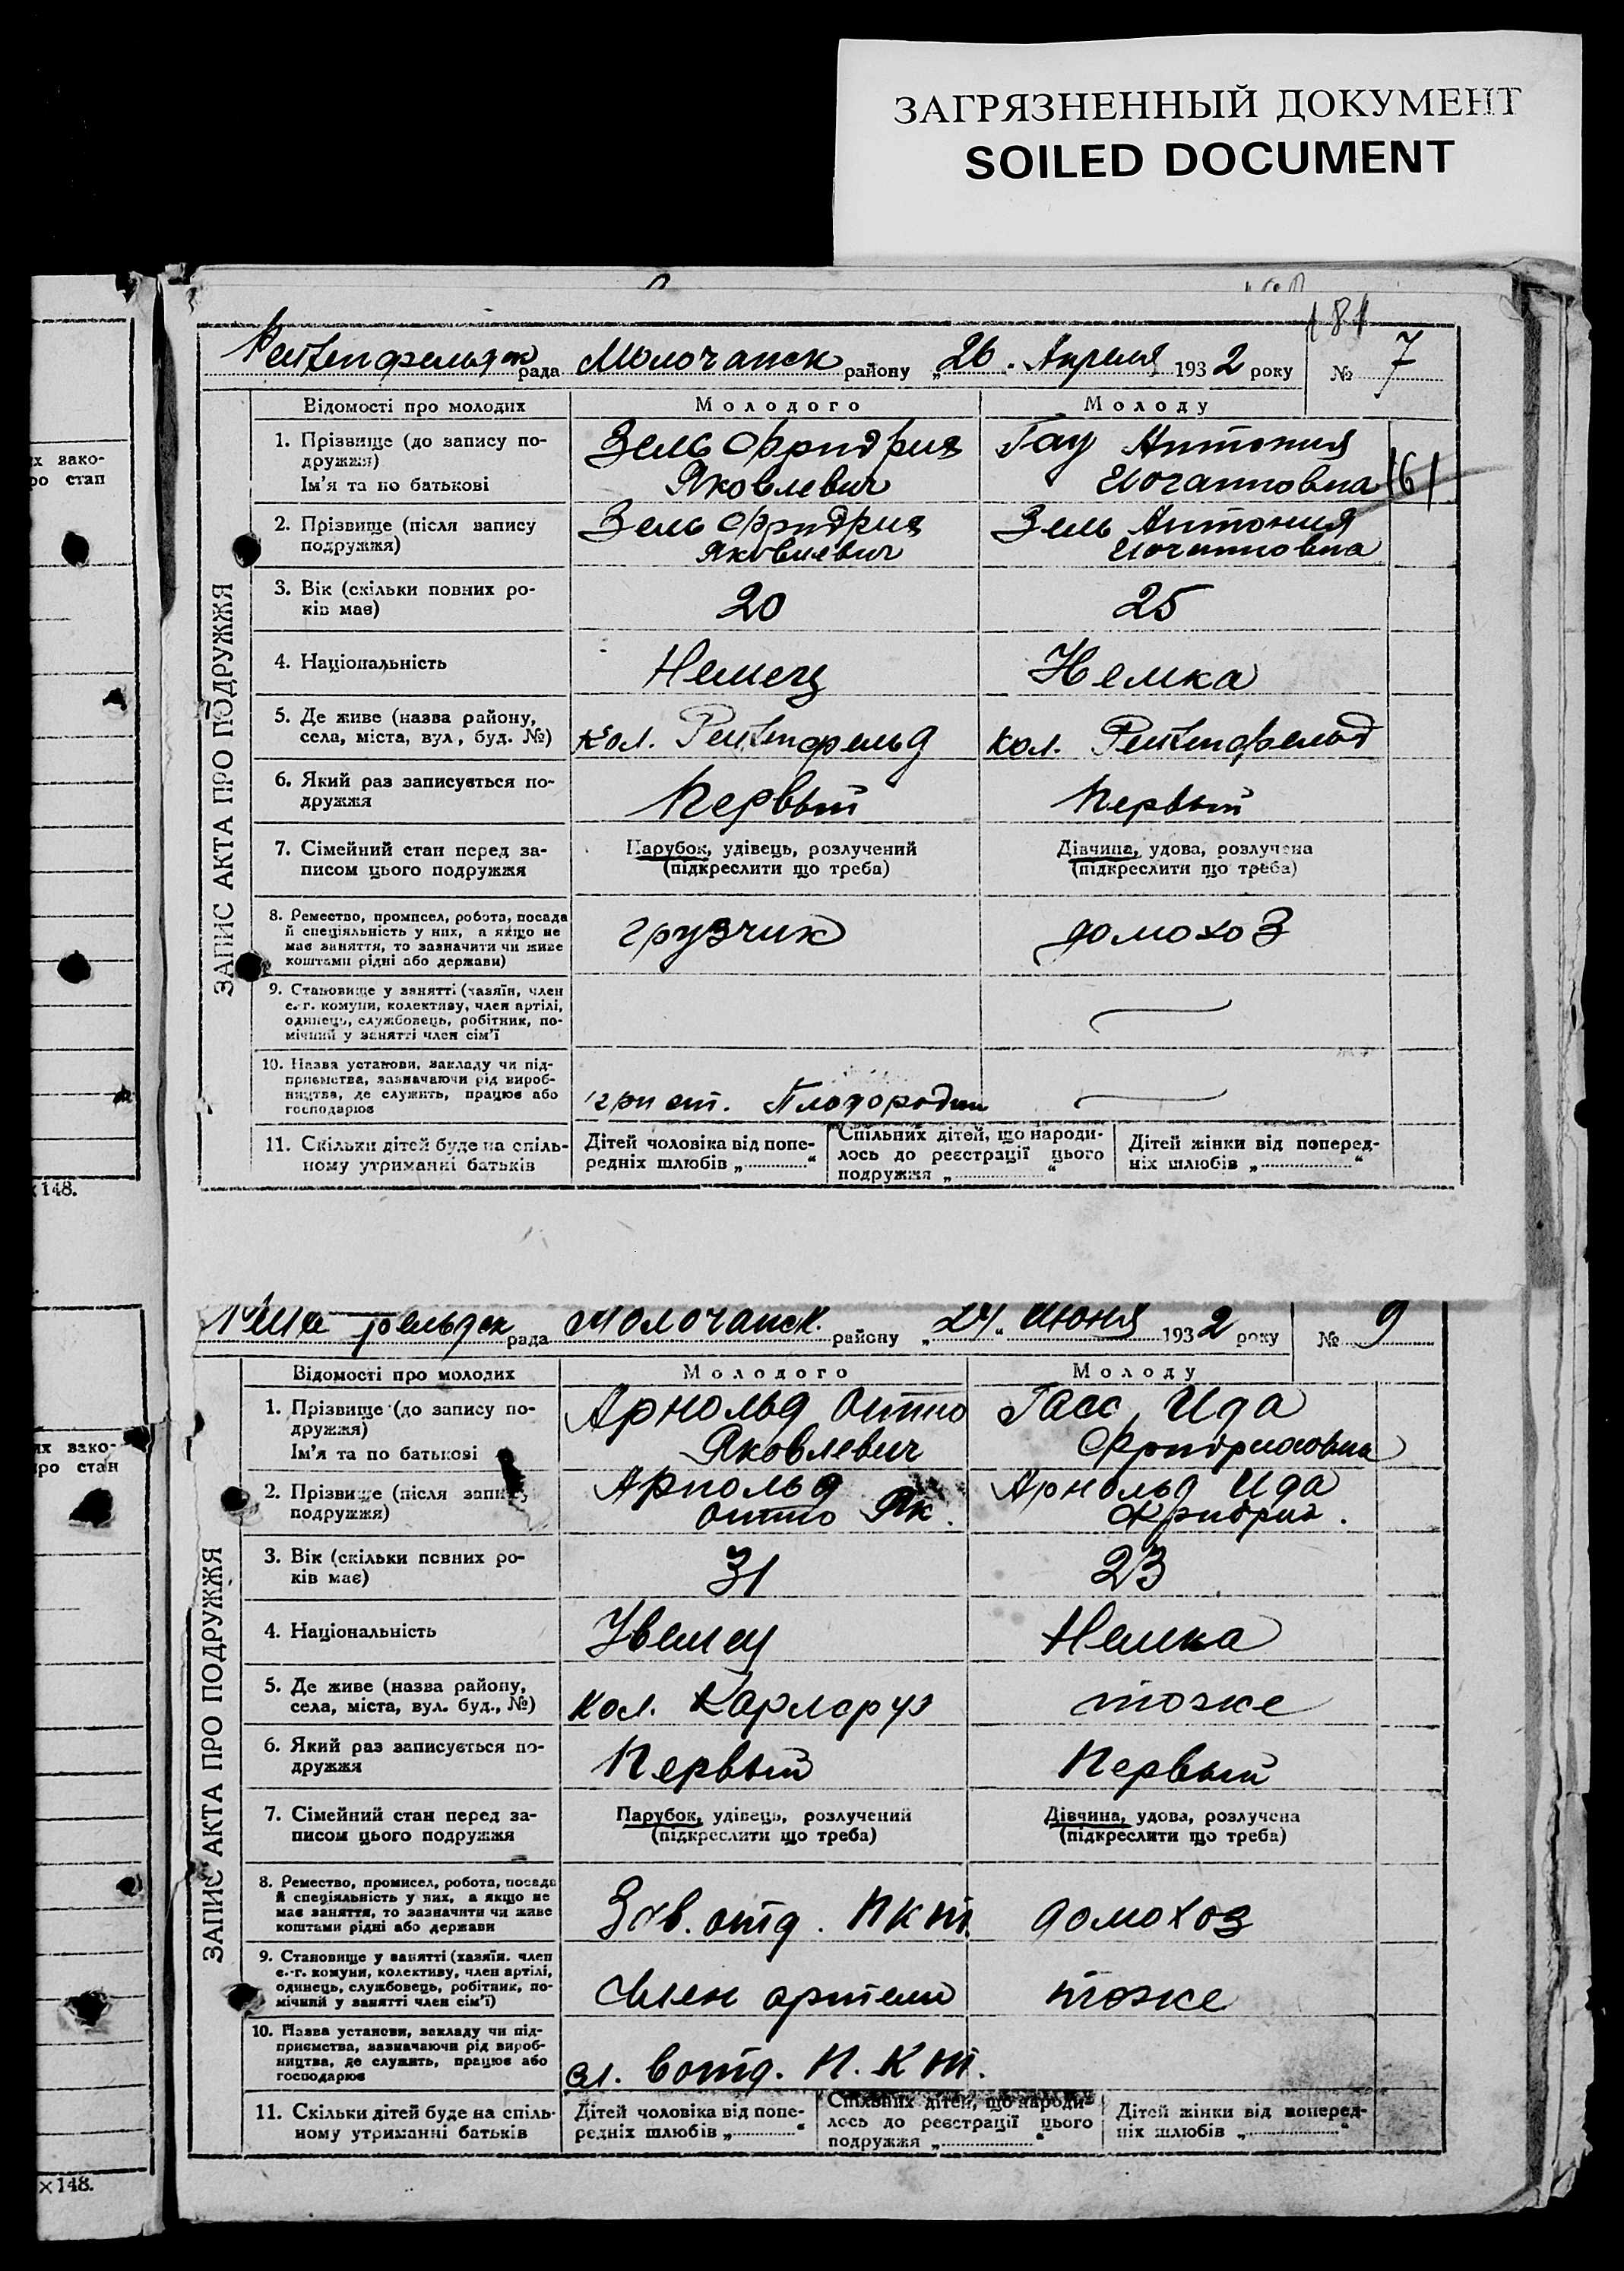 ЗАГРЯЗНЕННЫЙ ДОКУМЕНТ
SOILED DOCUMENT
181
рада Молочанск району „26. Апреля 1932 року № 7
Відомості про молодих Молодого Молоду
ЗАПИС АКТА ПРО ПОДРУЖЖЯ
1. Прізвище (до запису по-
дружжя)
Ім'я та по батькові
Зель Фридрих
Яковлевич
Гау Антония
Иоганновна
161
2. Прізвище (після запису
подружжя)
Зель Фридрих
Яковлевич
Зель Антония
Иоганновна
3. Вік (скільки повних ро-
ків має)
20
25
4. Національність
Немец
Немка
5. Де живе (назва району,
села, міста, вул, буд. №)
кол. Рейхенфельд
кол. Рейхенфельд
6. Який раз записується по-
дружжя
Первый
Первый
7. Сімейний стан перед за-
писом цього подружжя
Парубок, удівець, розлучений
(підкреслити що треба)
Дівчина, удова, розлучена
(підкреслити що треба)
8. Ремество, промисел, робота, посада
й спеціяльність у них, а якщо не
має заняття, то зазначити чи живе
коштами рідні або держави)
грузчик
домохоз
9. Становище у занятті (хазяїн, член
с.-г. комуни, колективу, член артілі,
одинець, службовець, робітник, по-
мічний у занятті член сім'ї
10. Назва установи, закладу чи під-
приємства, зазначаючи рід вироб-
ництва, де служить, працює або
господарює
при ст. Плодородии
11. Скільки дітей буде на спіль-
ному утриманні батьків
Дітей чоловіка від попе-
редніх шлюбів „ “
Спільних дітей, що народи-
лось до реєстрації цього
подружжя „ “
Дітей жінки від поперед-
ніх шлюбів „ “
рада Молочанск району „24“ Июня 1932 року № 9
Відомості про молодих Молодого Молоду
ЗАПИС АКТА ПРО ПОДРУЖЖЯ
1. Прізвище (до запису по-
дружжя)
Ім'я та по батькові
Арнольд Отто
Яковлевич
Гасс Ида
Фридриховна
2. Прізвище (після запису
подружжя)
Арнольд
Отто Як.
Арнольд Ида
Фридрих.
3. Вік (скільки повних ро-
ків має)
31
23
4. Національність
Немец
Немка
5. Де живе (назва району,
села, міста, вул. буд., №)
кол. Карлсруэ
тоже
6. Який раз записується по-
дружжя
Первый
Первый
7. Сімейний стан перед за-
писом цього подружжя
Парубок, удівець, розлучений
(підкреслити що треба)
Дівчина, удова, розлучена
(підкреслити що треба)
8. Ремество, промисел, робота, посада
й спеціяльність у них, а якщо не
має заняття, то зазначити чи живе
коштами рідні або держави
Зав. отд. Пкт.
домохоз
9. Становище у занятті (хазяїн. член
с.-г. комуни, колективу, член артілі,
одинець, службовець, робітник, по-
мічний у занятті член сім'ї)
Член артели
тоже
10. Назва установи, закладу чи під-
приємства, зазначаючи рід вироб-
ництва, де служить, працює або
господарює
отд. П. К т.
11. Скільки дітей буде на спіль-
ному утриманні батьків
Дітей чоловіка від попе-
редніх шлюбів „ “
Спільних дітей, що народи-
лось до реєстрації цього
подружжя „ “
Дітей жінки від поперед-
ніх шлюбів „ “
их зако-
ро стан
×148.
их зако-
ро стан
×148.